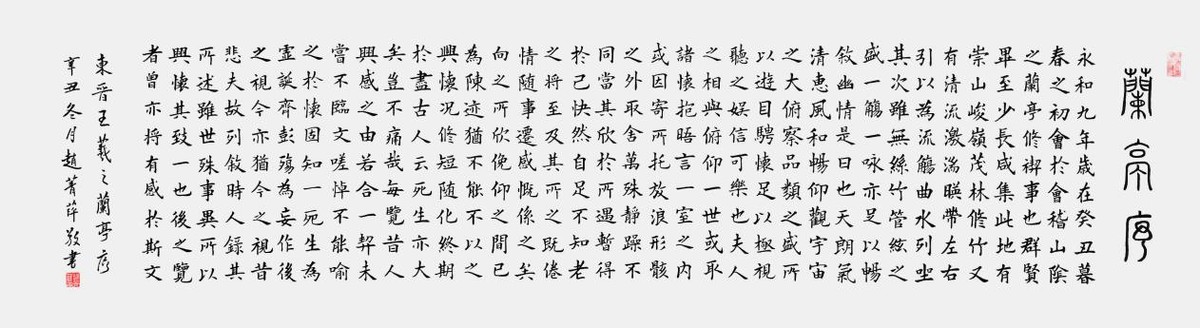 蘭亭序
永和九年歲在癸丑暮
春之初會於會稽山陰
之蘭亭修禊事也群賢
畢至少長咸集此地有
崇山峻嶺茂林修竹又
有清流激湍暎帶左右
引以為流觴曲水列坐
其次雖無絲竹管絃之
盛一觴一咏亦足以暢
敘幽情是日也天朗氣
清惠風和暢仰觀宇宙
之大俯察品類之盛所
以遊目騁懷足以極視
聽之娛信可樂也夫人
之相與俯仰一世或取
諸懷抱晤言一室之內
或因寄所托放浪形骸
之外取舍萬殊靜躁不
同當其欣於所遇暫得
於己快然自足不知老
之將至及其所之既倦
情隨事遷感慨係之矣
向之所欣俛仰之間已
為陳迹猶不能不以之
興懷况修短隨化終期
於盡古人云死生亦大
矣豈不痛哉每覽昔人
興感之由若合一契未
當不臨文嗟悼不能喻
之於懷固知一死生為
虛誕齊彭殤為妄作後
之視今亦猶今之視昔
悲夫故列敘時人錄其
所述雖世殊事異所以
興懷其致一也後之覽
者曾亦將有感於斯文
東晉王羲之蘭亭序
辛丑冬月趙菁萍敬書